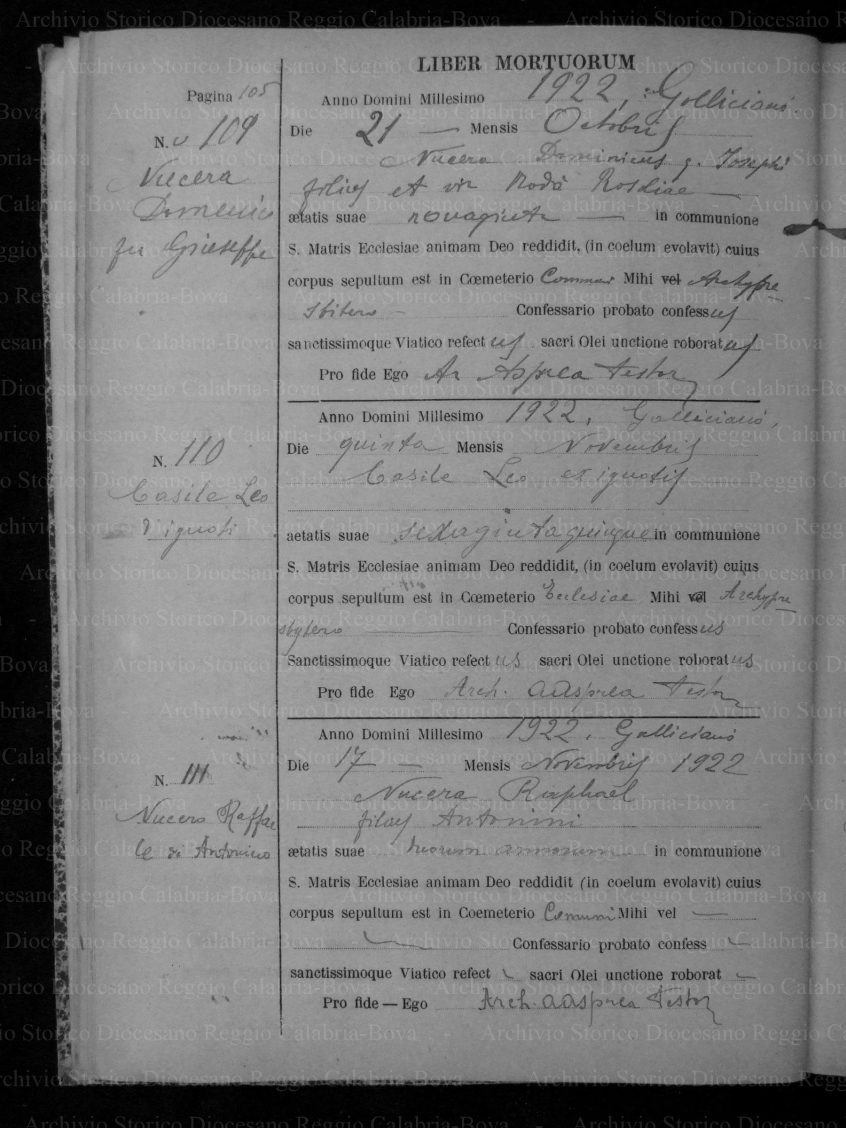 LIBER MORTUORUM
Pagina 105
Anno Domini Millesimo 1922, Gallicianò.
N. 109
Die 21 — Mensis Octobris
Nucera Domenico fu Giuseppe
Nucera Dominicus q. Josephi
filius et Rodà Rosaliae
ætatis suae novaginta — in communione
S. Matris Ecclesiae animam Deo reddidit, (in coelum evolavit) cuius
corpus sepultum est in Cœmeterio Commun Mihi vel Archypre
sbitero - Confessario probato confessus
sanctissimoque Viatico refectus sacri Olei unctione roboratus
Pro fide Ego Ar Asprea testor
Anno Domini Millesimo 1922, Gallicianò,
N. 110
Die quinta Mensis Novembris
Casile Leo
d'ignoti
Casile Leo ex ignotis
aetatis suae sexagintaquinque in communione
S. Matris Ecclesiae animam Deo reddidit, (in coelum evolavit) cuius
corpus sepultum est in Cœmeterio Ecclesiae Mihi vel Archypre
sbytero — Confessario probato confessus
Sanctissimoque Viatico refectus sacri Olei unctione roboratus
Pro fide Ego Arch. Asprea testor
Anno Domini Millesimo 1922. Gallicianò
N. 111
Die 17 — Mensis Novembris 1922
Nucera Raffae
le di Antonino
Nucera Raphael
filius Antonini
ætatis suae annorum in communione
S. Matris Ecclesiae animam Deo reddidit (in coelum evolavit) cuius
corpus sepultum est in Coemeterio Comuni Mihi vel —
— Confessario probato confess —
sanctissimoque Viatico refect — sacri Olei unctione roborat —
Pro fide — Ego Arch. Asprea testor
Archivio Storico Diocesano Reggio Calabria-Bova